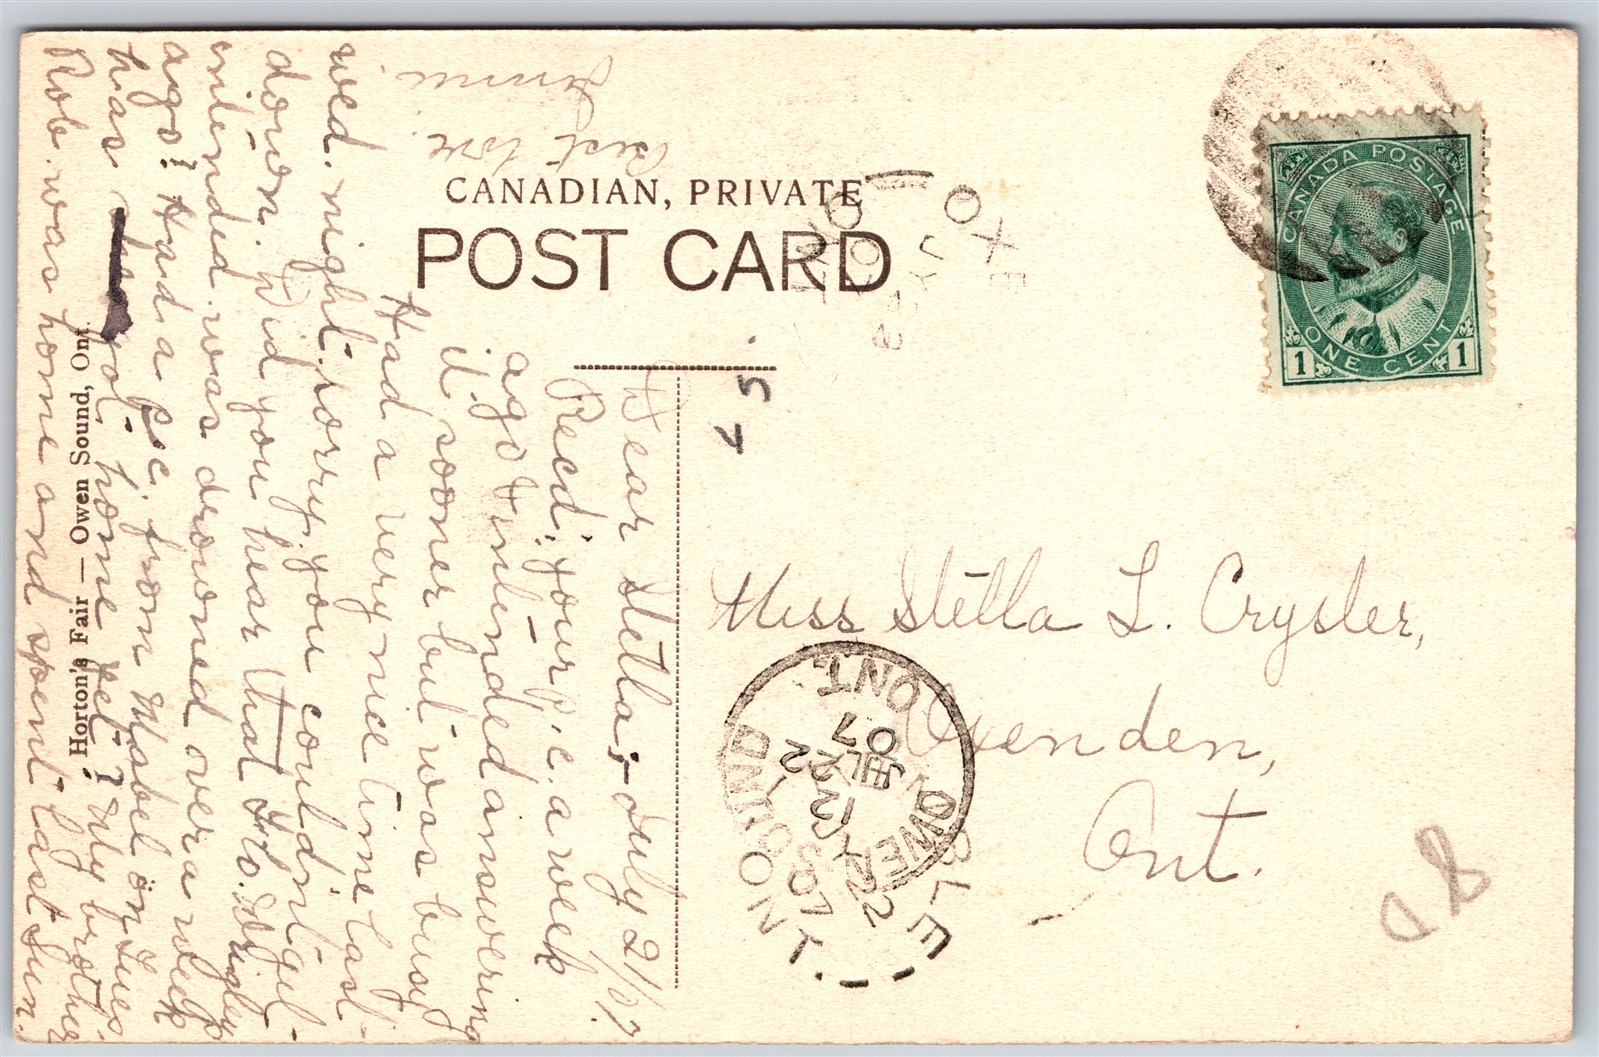 CANADIAN, PRIVATE
POST CARD
CANADA POSTAGE
ONE CENT
1 1
Miss Stella L. Crysler,
Oxenden,
Ont.
OWEN SOUND
ONT
JUL 22
07
Dear Stella:- July 21/07.
Recd. your p.c. a week
ago & intended answering
it sooner but was busy
Had a very nice time last
wed. night, sorry you couldn't get
down. Did you hear that Flo. Wrigley
intended was drowned over a week
ago? Had a p.c. from Mabel on Tues.
has got home yet? My brother
Rob. was home and spent last Sun.
Best love.
Horton's Fair — Owen Sound, Ont.